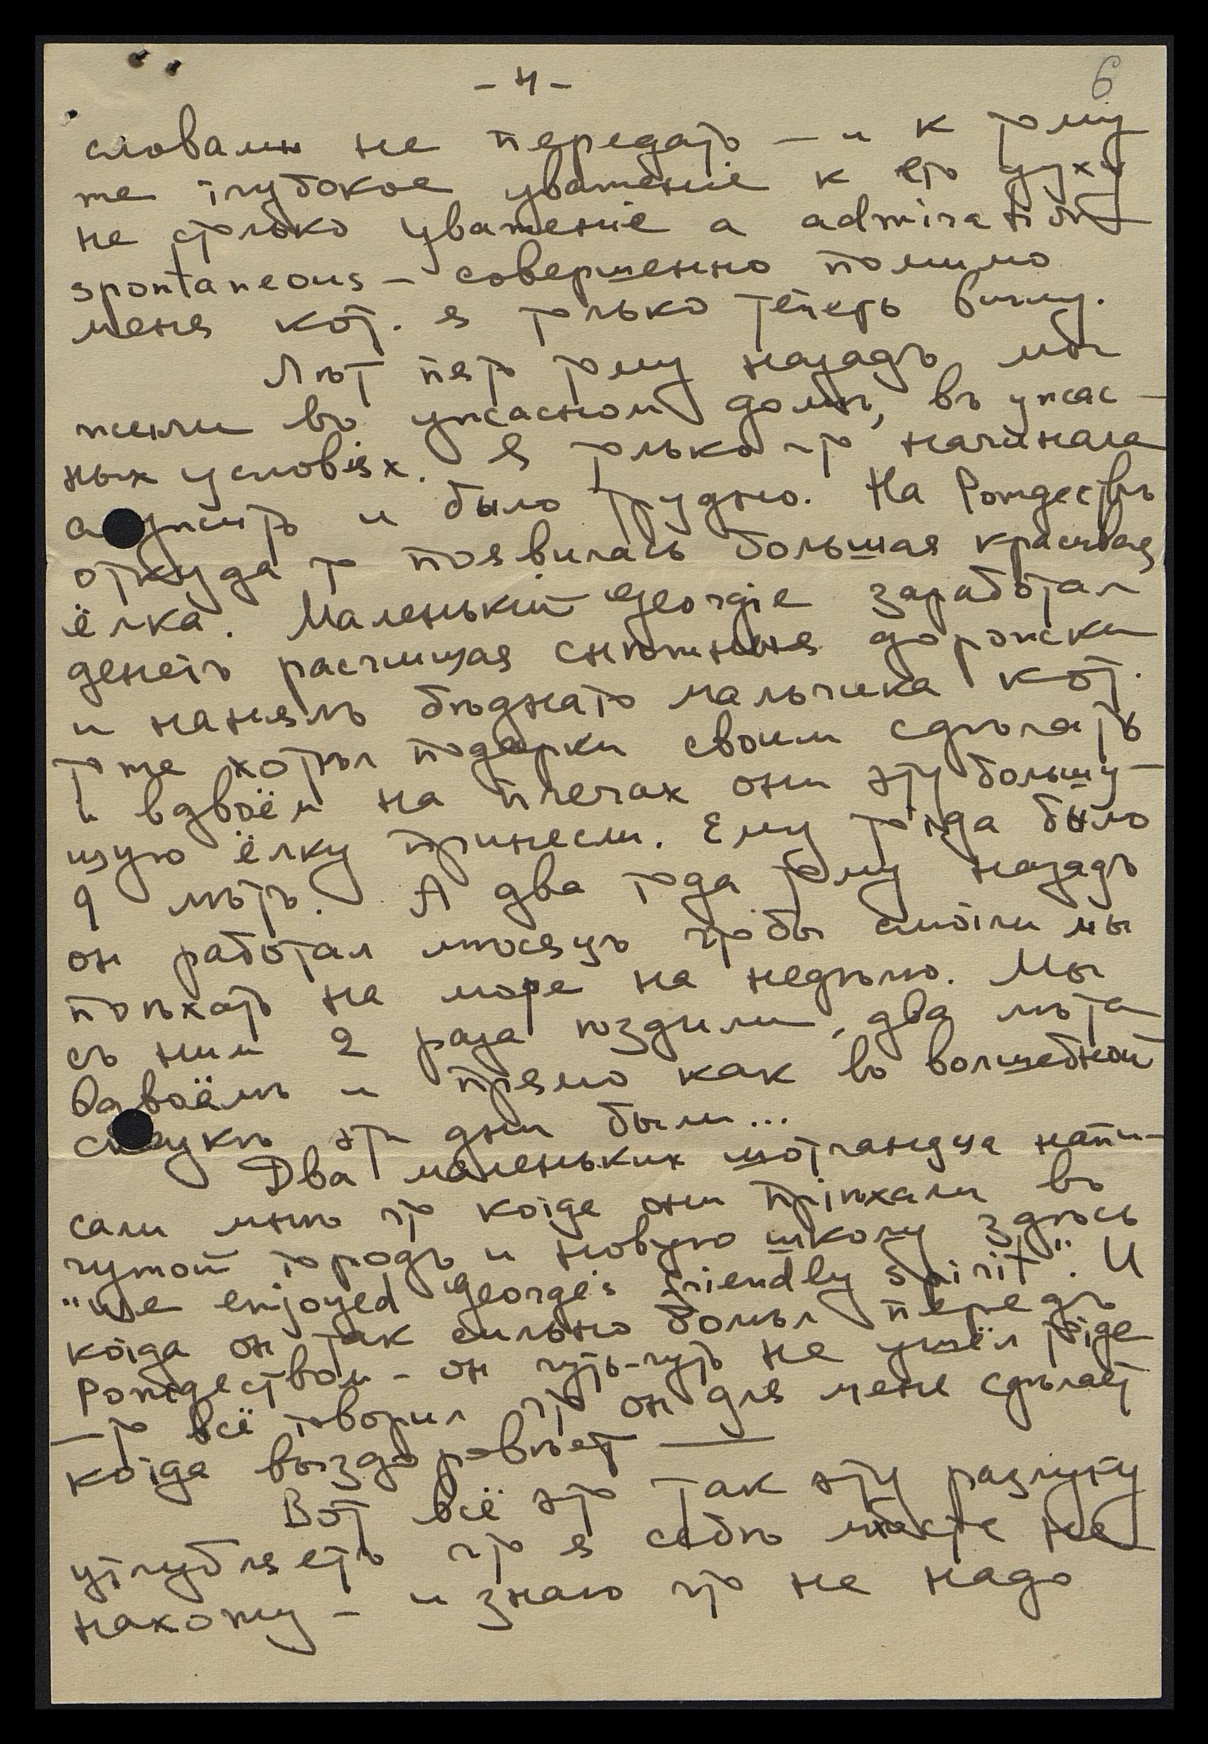 - 4 -
6
словами не передать – и к тому
же глубокое уваженiе к его духу
не столько уваженiе а admiration
spontaneous – совершенно помимо
меня кот. я только теперь вижу.
Лѣт пять тому назадъ мы
жили въ ужасном домѣ, въ ужас-
ных условiях. Я только что начинала
служить и было трудно. На Рождествѣ
откуда то появилась большая красивая
ёлка. Маленькiй Georgie заработал
денегъ расчищая снѣжныя дорожки
и нанялъ бѣднаго мальчика кот.
тоже хотѣл подарки своим сдѣлать
и вдвоём на плечах они эту большу-
щую ёлку принесли. Ему тогда было
9 лѣтъ. А два года тому назадъ
он работал мѣсяцъ чтобы смогли мы
поѣхать на море на недѣлю. Мы
съ ним 2 раза ѣздили, два лѣта
вдвоёмъ и прямо как въ волшебной
сказкѣ эти дни были...
Два маленьких шотландца напи-
сали мнѣ что когда они прiѣхали въ
чужой городъ и новую школу здѣсь
"we enjoyed George's friendly spirit". И
когда он так сильно болѣл передъ
Рождеством – он чуть-чуть не ушёл тогда
– то всё говорил что он для меня сдѣлает
когда выздоровѣет –
Вот всё это так эту разлуку
углубляетъ что я себѣ мѣста не
нахожу – и знаю что не надо